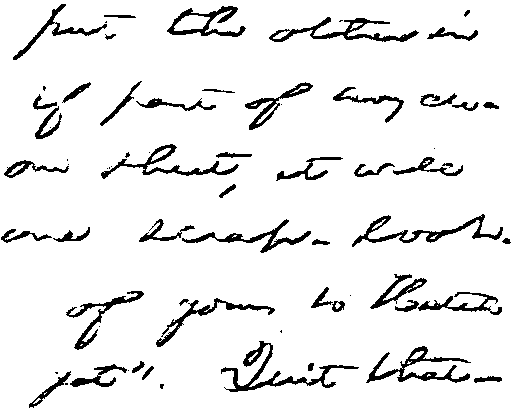 put the others in
if part of any
one sheet, it will
one scrap-book.
of yours to
yet". Quit that-